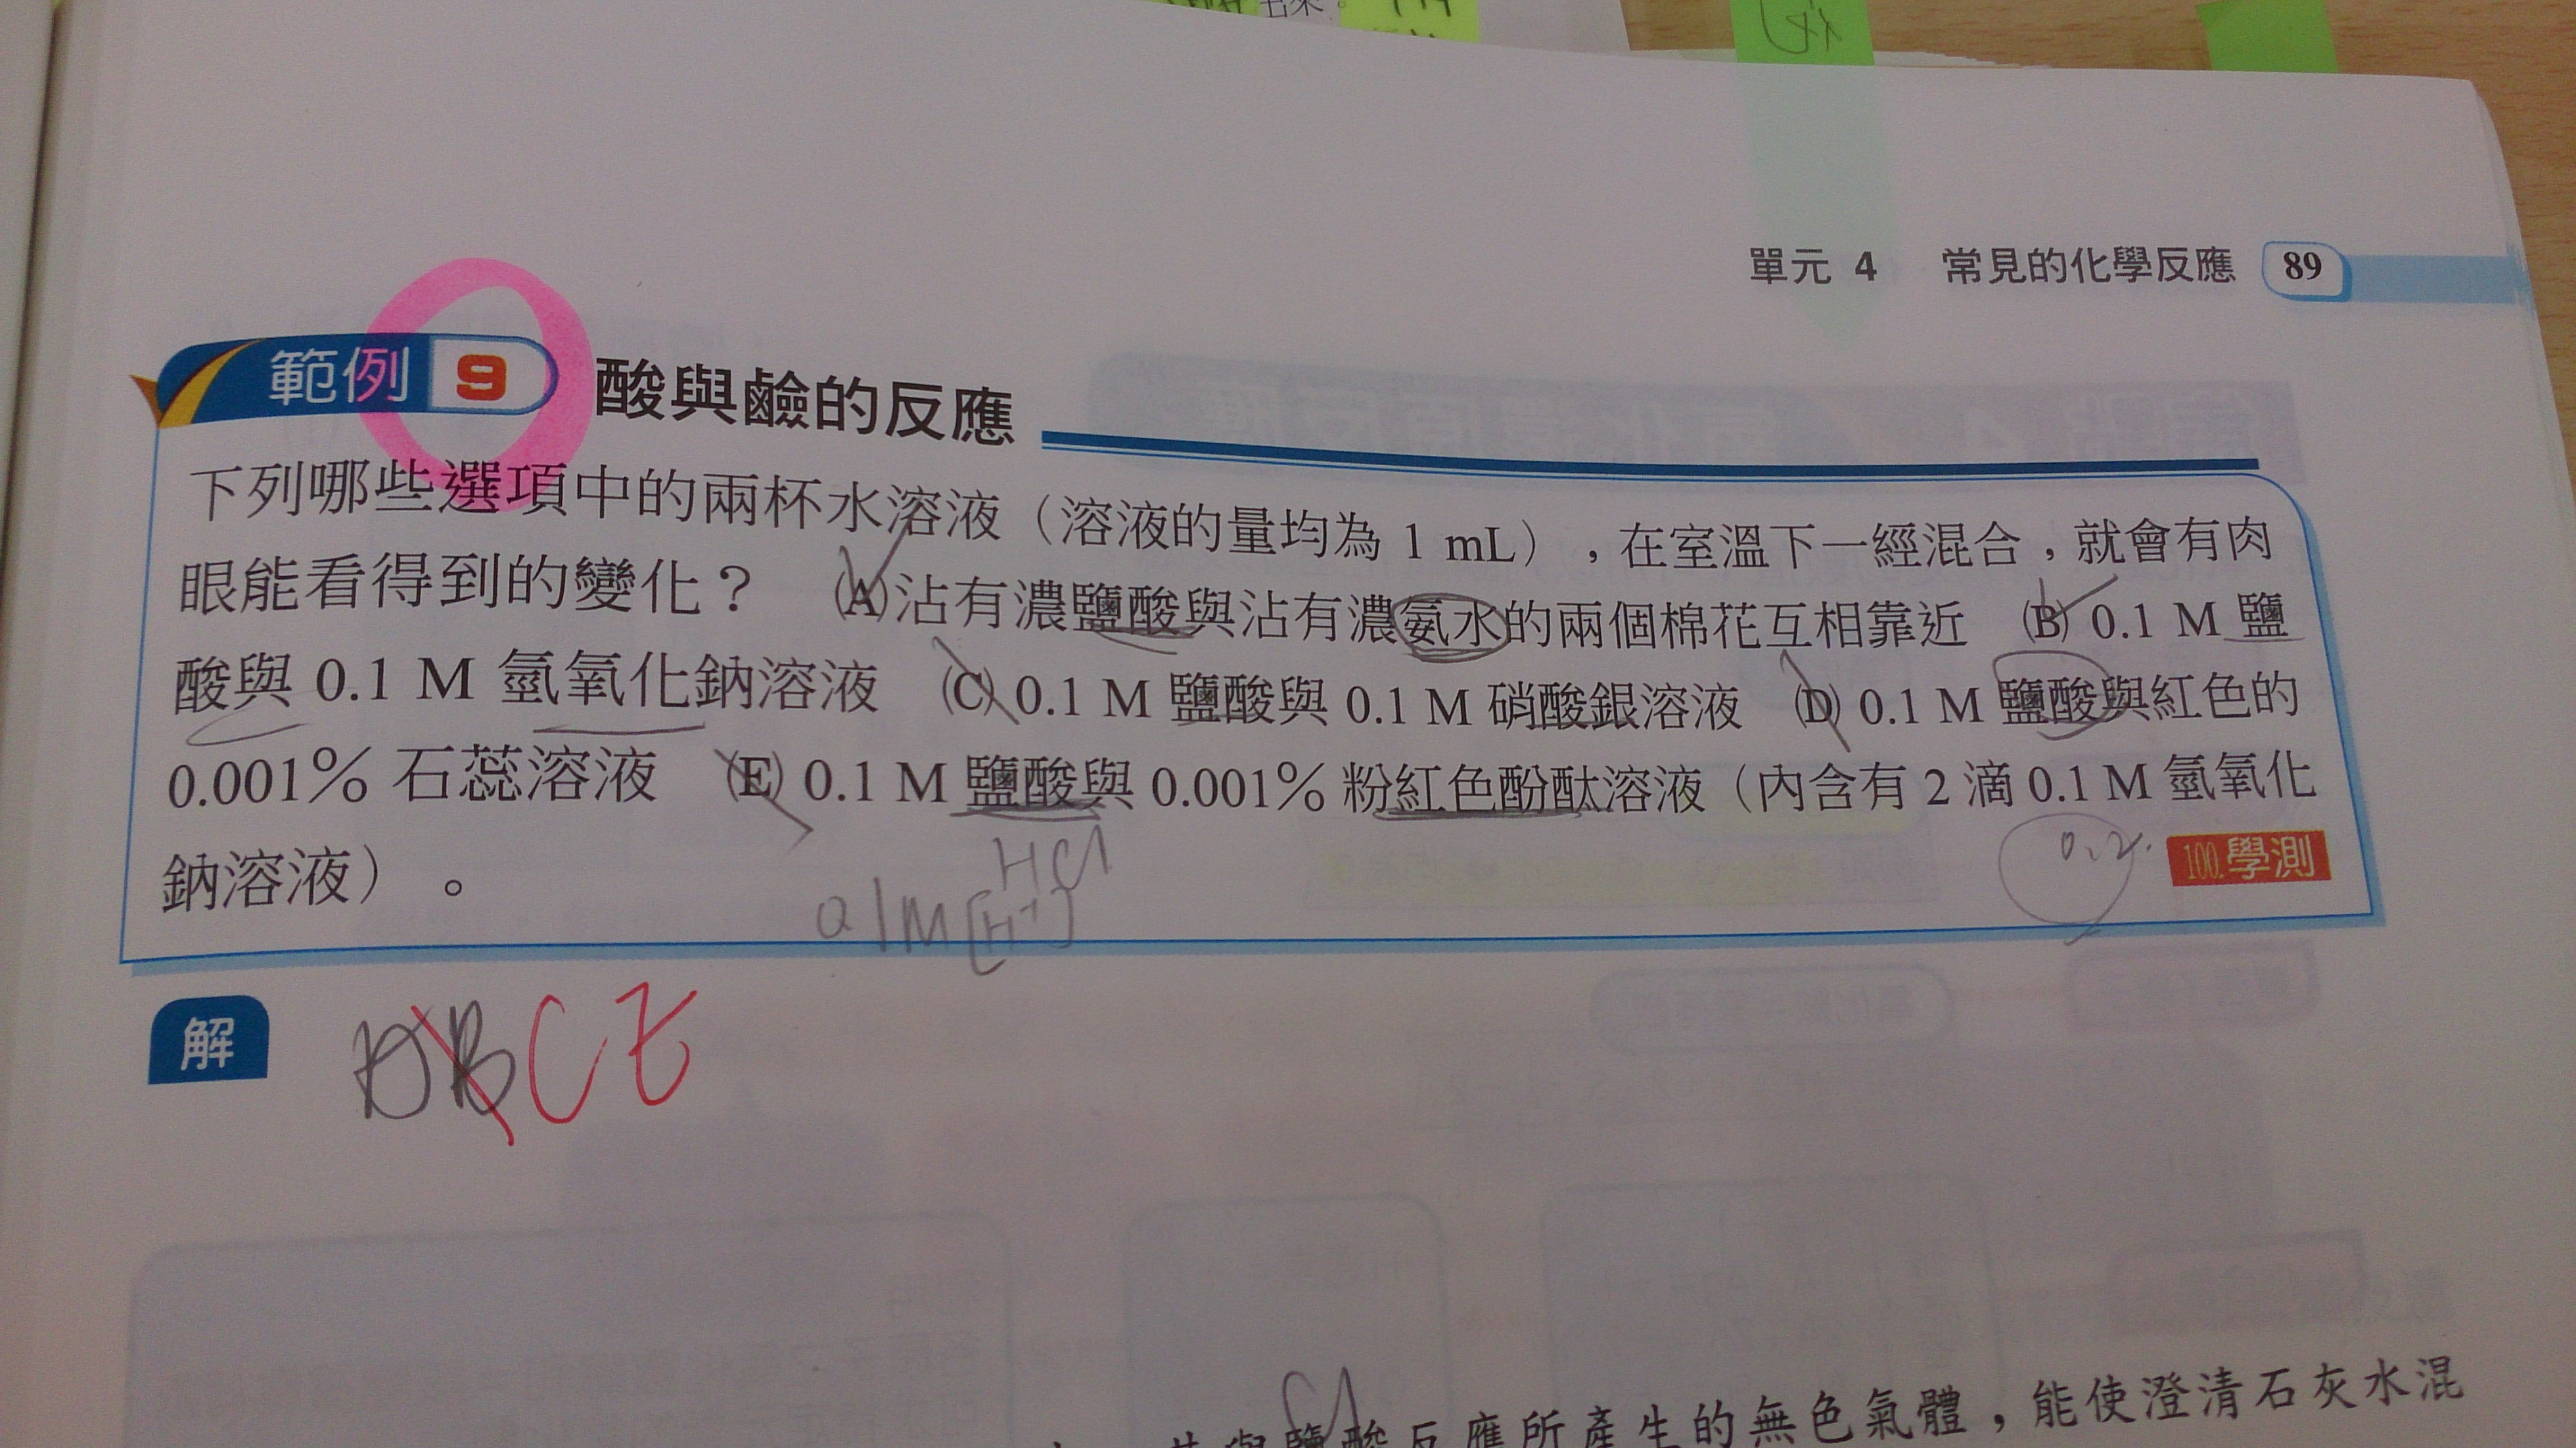 出來。
單元 4 常見的化學反應 89
範例 9 酸與鹼的反應
下列哪些選項中的兩杯水溶液（溶液的量均為 1 mL），在室溫下一經混合，就會有肉
眼能看得到的變化？ (A)沾有濃鹽酸與沾有濃氨水的兩個棉花互相靠近 (B) 0.1 M 鹽
酸與 0.1 M 氫氧化鈉溶液 (C) 0.1 M 鹽酸與 0.1 M 硝酸銀溶液 (D) 0.1 M 鹽酸與紅色的
0.001% 石蕊溶液 (E) 0.1 M 鹽酸與 0.001% 粉紅色酚酞溶液（內含有 2 滴 0.1 M 氫氧化
鈉溶液）。
HCl
0.1M[H+]
0.2.
100.學測
解 AB C E
與鹽酸反應所產生的無色氣體，能使澄清石灰水混